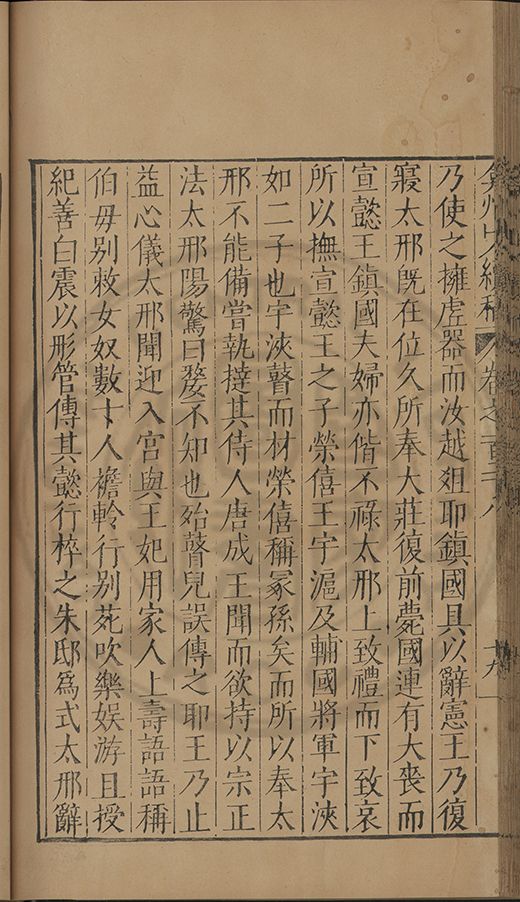 弇州史續稿 卷之百二八 十九
乃使之擁虛器而汝越爼耶鎮國具以辭憲王乃復
寢太邢旣在位久所奉大莊復前薨國連有大喪而
宣懿王鎮國夫婦亦偕不祿太邢上致禮而下致哀
所以撫宣懿王之子榮僖王宇滬及輔國將軍宇浹
如二子也宇浹瞽而材榮僖稱冢孫矣而所以奉太
邢不能備嘗執撻其侍人唐成王聞而欲持以宗正
法太邢陽驚曰婺不知也殆瞽兒誤傳之耶王乃止
益心儀太邢聞迎入宮與王妃用家人上壽語語稱
伯毋别敕女奴數十人襜軨行别苑吹樂娛游且授
紀善白震以彤管傳其懿行梓之朱邸爲式太邢辭